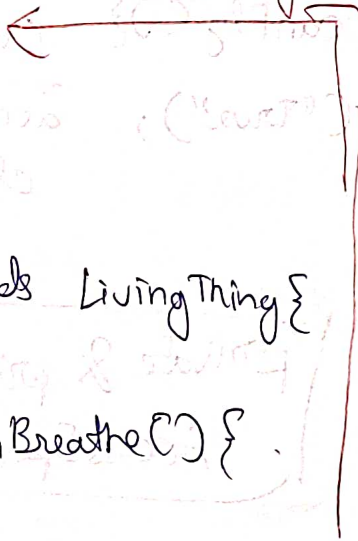 ds LivingThing{
Breathe() {